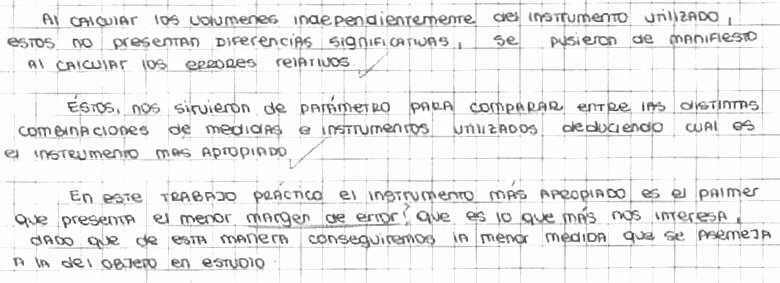 Al calcular los volumenes independientemente del instrumento utilizado,
estos no presentan diferencias significativas, se pusieron de manifiesto
al calcular los errores relativos.
Éstos, nos sirvieron de parámetro para comparar entre las distintas
combinaciones de medidas e instrumentos utilizados deduciendo cual es
el instrumento mas apropiado.
En este trabajo práctico el instrumento más apropiado es el palmer
que presenta el menor margen de error; que es lo que más nos interesa,
dado que de esta manera conseguiremos la menor medida que se asemeja
a la del objeto en estudio.